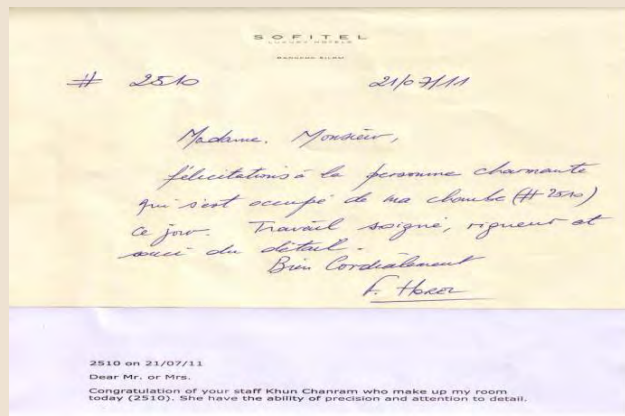 SOFITEL
LUXURY HOTELS
BANGKOK SILOM
# 2510 21/07/11
Madame, Monsieur,
félicitations à la personne charmante
qui s'est occupé de ma chambe (# 2510)
ce jour. Travail soigné, rigueur et
souci du détail.
Bien Cordialement
F.
2510 on 21/07/11
Dear Mr. or Mrs.
Congratulation of your staff Khun Chanram who make up my room
today (2510). She have the ability of precision and attention to detail.